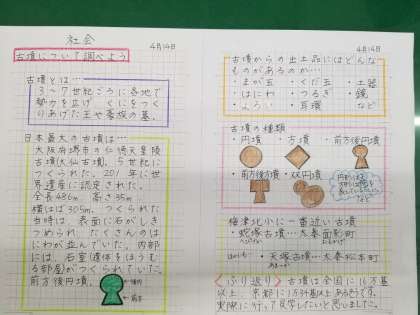 社会
4月14日
古墳について調べよう
古墳とは…
3～7世紀ごろに各地で
勢力を広げ、くにをつく
りあげた王や豪族の墓。
日本最大の古墳は…
大阪府堺市の仁徳天皇陵
古墳(大仙古墳)。5世紀に
つくられた。201 年に世
界遺産に認定された。
全長486m、高さ35m、
横はば305m。つくられた
当時は、表面に石がしき
つめられ、たくさんのは
にわが並んでいた。内部に
は、石室(遺体をほうむ
る部屋)がつくられていた。
前方後円墳。
4月14日
古墳からの出土品にはどんな
ものがあるのか…
・まが玉 ・くだ玉 ・土器
・はにわ ・つるぎ ・鏡
・よろい ・耳環 など
古墳の種類
・円墳 ・方墳 ・前方後円墳
・前方後方墳 ・双円墳
梅津北小に一番近い古墳
・蛇塚古墳…太秦面影町
へびづか
おもかげ
ほかにも
・天塚古墳…太秦松本町
〈ふり返り〉古墳は全国に16万基
以上、京都に1万3千基以上あるそうです。
実際に行って見学したいと思いました。